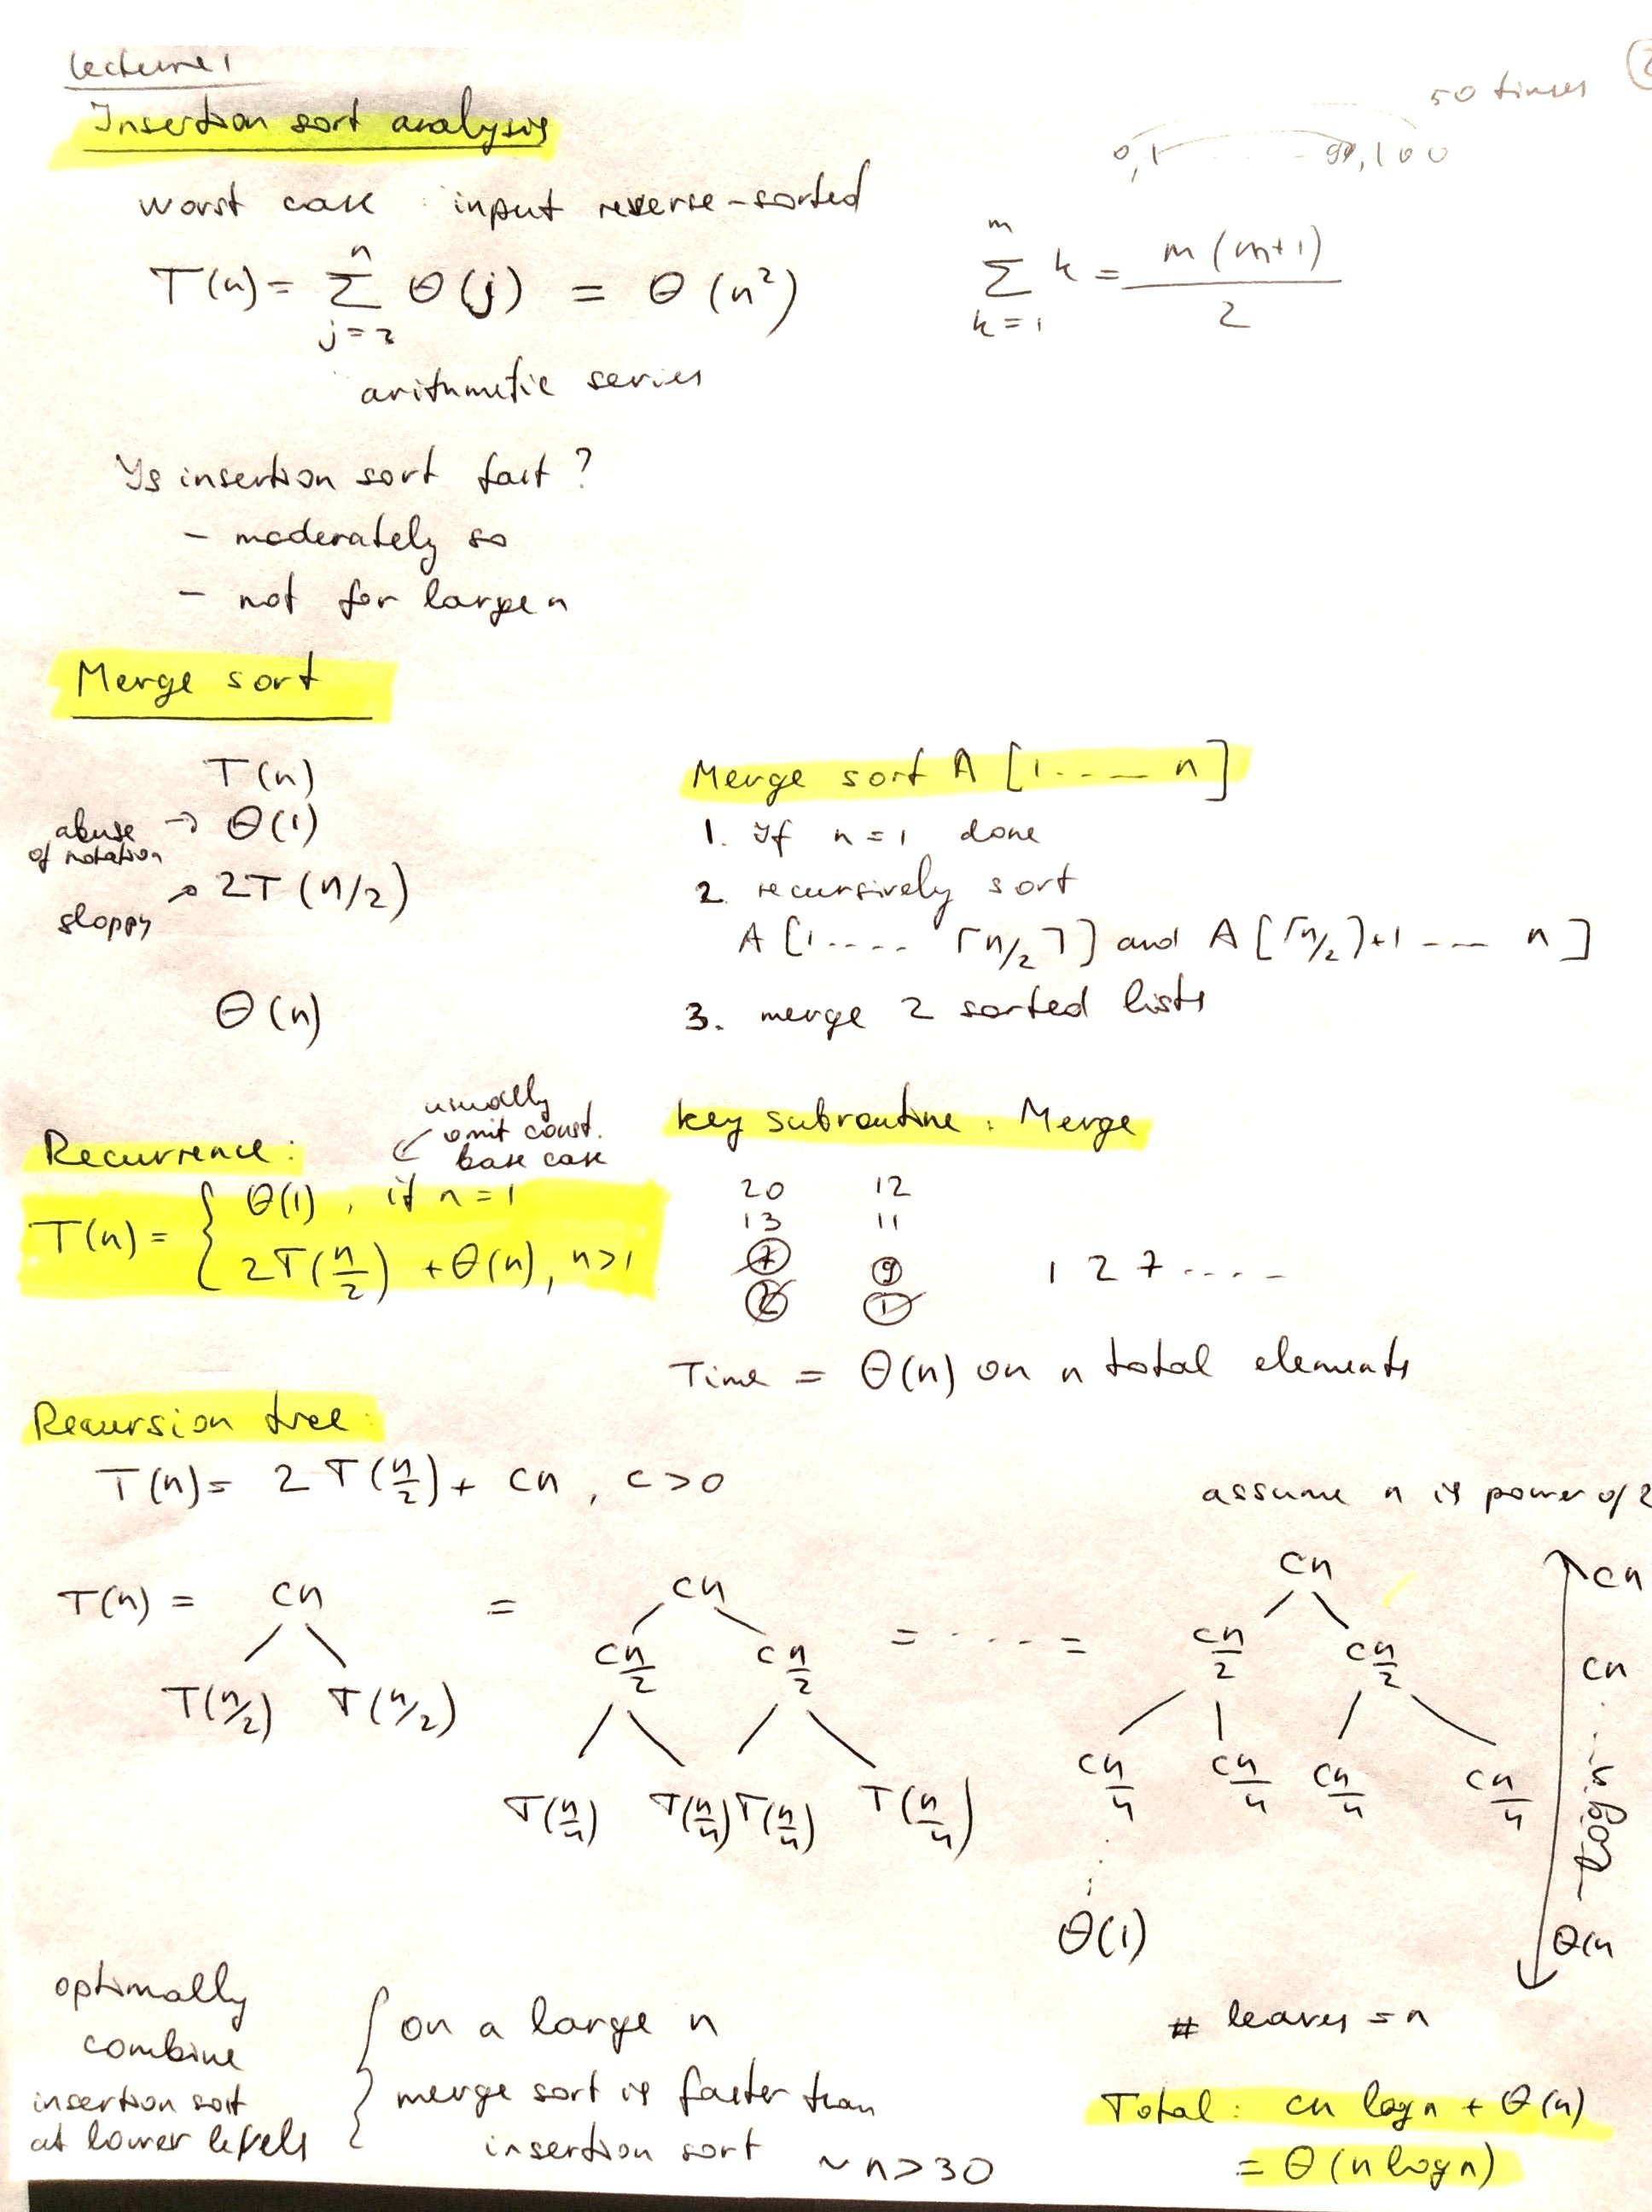 Lecture 1
50 times
Insertion sort analysis
0,1 . . . . 99,100
worst case : input reverse-sorted
T(n) = n Σ j=2 Θ(j) = Θ(n²)
m Σ k=1 k = m(m+1) / 2
arithmetic series
Is insertion sort fast?
- moderately so
- not for large n
Merge sort
T(n)
abuse of notation → Θ(1)
sloppy → 2T(n/2)
Θ(n)
Merge sort A [1 . . . . n]
1. If n = 1 done
2. recursively sort
A [1 . . . . ⌈n/2⌉] and A [⌈n/2)+1 - - n]
3. merge 2 sorted lists
usually
omit const.
base case
Recurrence :
T(n) = { Θ(1) , if n = 1
2T(n/2) + Θ(n), n>1
key subroutine : Merge
20 12
13 11
7 9 1 2 7 . . . .
2 1
Time = Θ(n) on n total elements
Recursion tree :
T(n) = 2T(n/2) + cn, c>0
assume n is power of 2
T(n) = cn = cn = . . . . = cn cn
T(n/2) T(n/2) cn/2 cn/2 cn/2 cn/2 cn
T(n/4) T(n/4) T(n/4) T(n/4) cn/4 cn/4 cn/4 cn/4
log n
Θ(1) Θ(n
# leaves = n
optimally
combine
insertion sort
at lower levels
{ on a large n
merge sort is faster than
insertion sort ~ n>30
Total : cn log n + Θ(n)
= Θ(n log n)